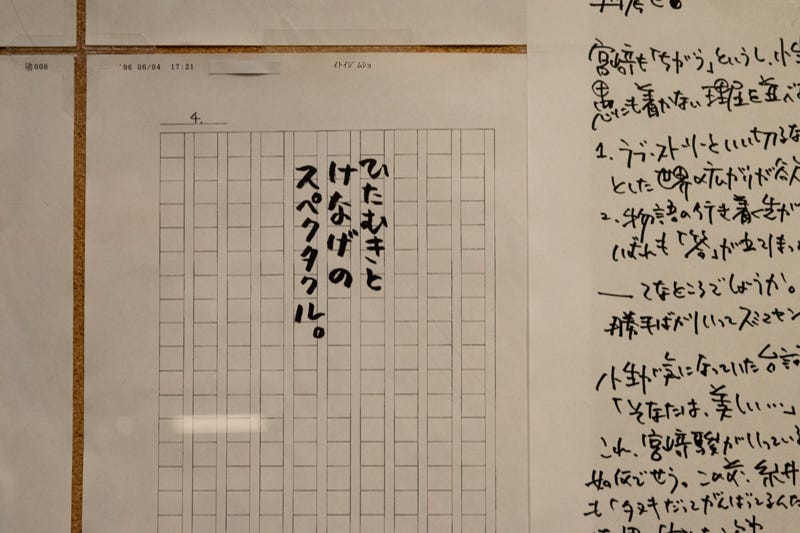 006
'96 06/04 17:21
イトイジムショ
4.
ひたむきと
けなげの
スペクタクル。
宮崎も「ちがう」というし、小生
愚にも着かない理屈を並べ
1. ラブ・ストーリーといい切るな
とした世界の広がりが
2. 物語の行き着く先が
「答」が
― てなところでしょうか。
勝手ばかりいってスミマセン
小生が気になっていた台詞
「そなたは、美しい…」
これ、宮崎駿がいっている
如何でせう。この前、糸井
も「タヌキだってがんばってるんだ